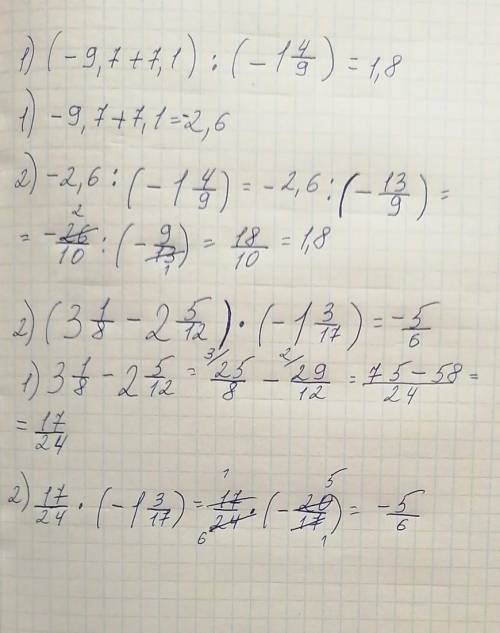 1) (-9,7+7,1) : (-1 4/9) = 1,8
1) -9,7+7,1=-2,6
2) -2,6 : (-1 4/9) = -2,6 : (-13/9) =
= -26/10 : (-9/13) = 18/10 = 1,8
2) (3 1/8 - 2 5/12) · (-1 3/17) = -5/6
1) 3 1/8 - 2 5/12 = 25/8 - 29/12 = 75-58/24 =
= 17/24
2) 17/24 · (-1 3/17) = 17/24 · (-20/17) = -5/6